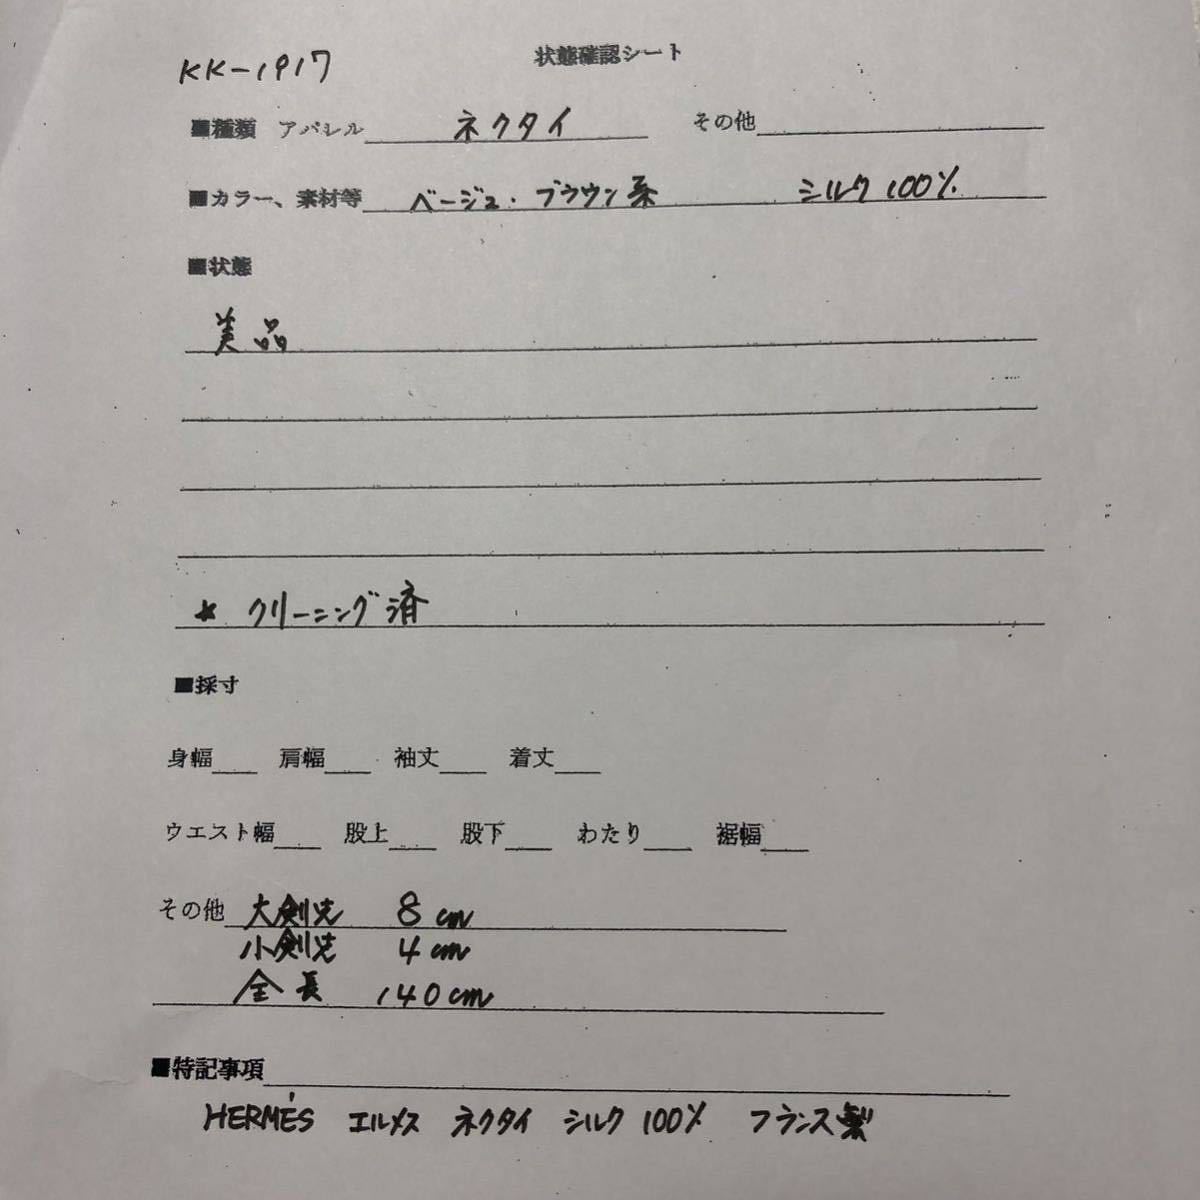 KK-1917
状態確認シート
■種類 アパレル ネクタイ その他
■カラー、素材等 ベージュ・ブラウン系 シルク100%
■状態
美品
* クリーニング済
■採寸
身幅 肩幅 袖丈 着丈
ウエスト幅 股上 股下 わたり 裾幅
その他 大剣先 8cm
小剣先 4cm
全長 140cm
■特記事項
HERMÉS エルメス ネクタイ シルク100% フランス製